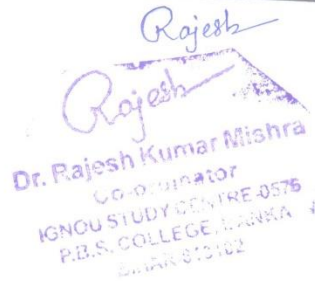 Rajesh
Rajesh
Dr. Rajesh Kumar Mishra
Co-ordinator
IGNOU STUDY CENTRE-0576
P.B.S. COLLEGE, BANKA
BIHAR-813102